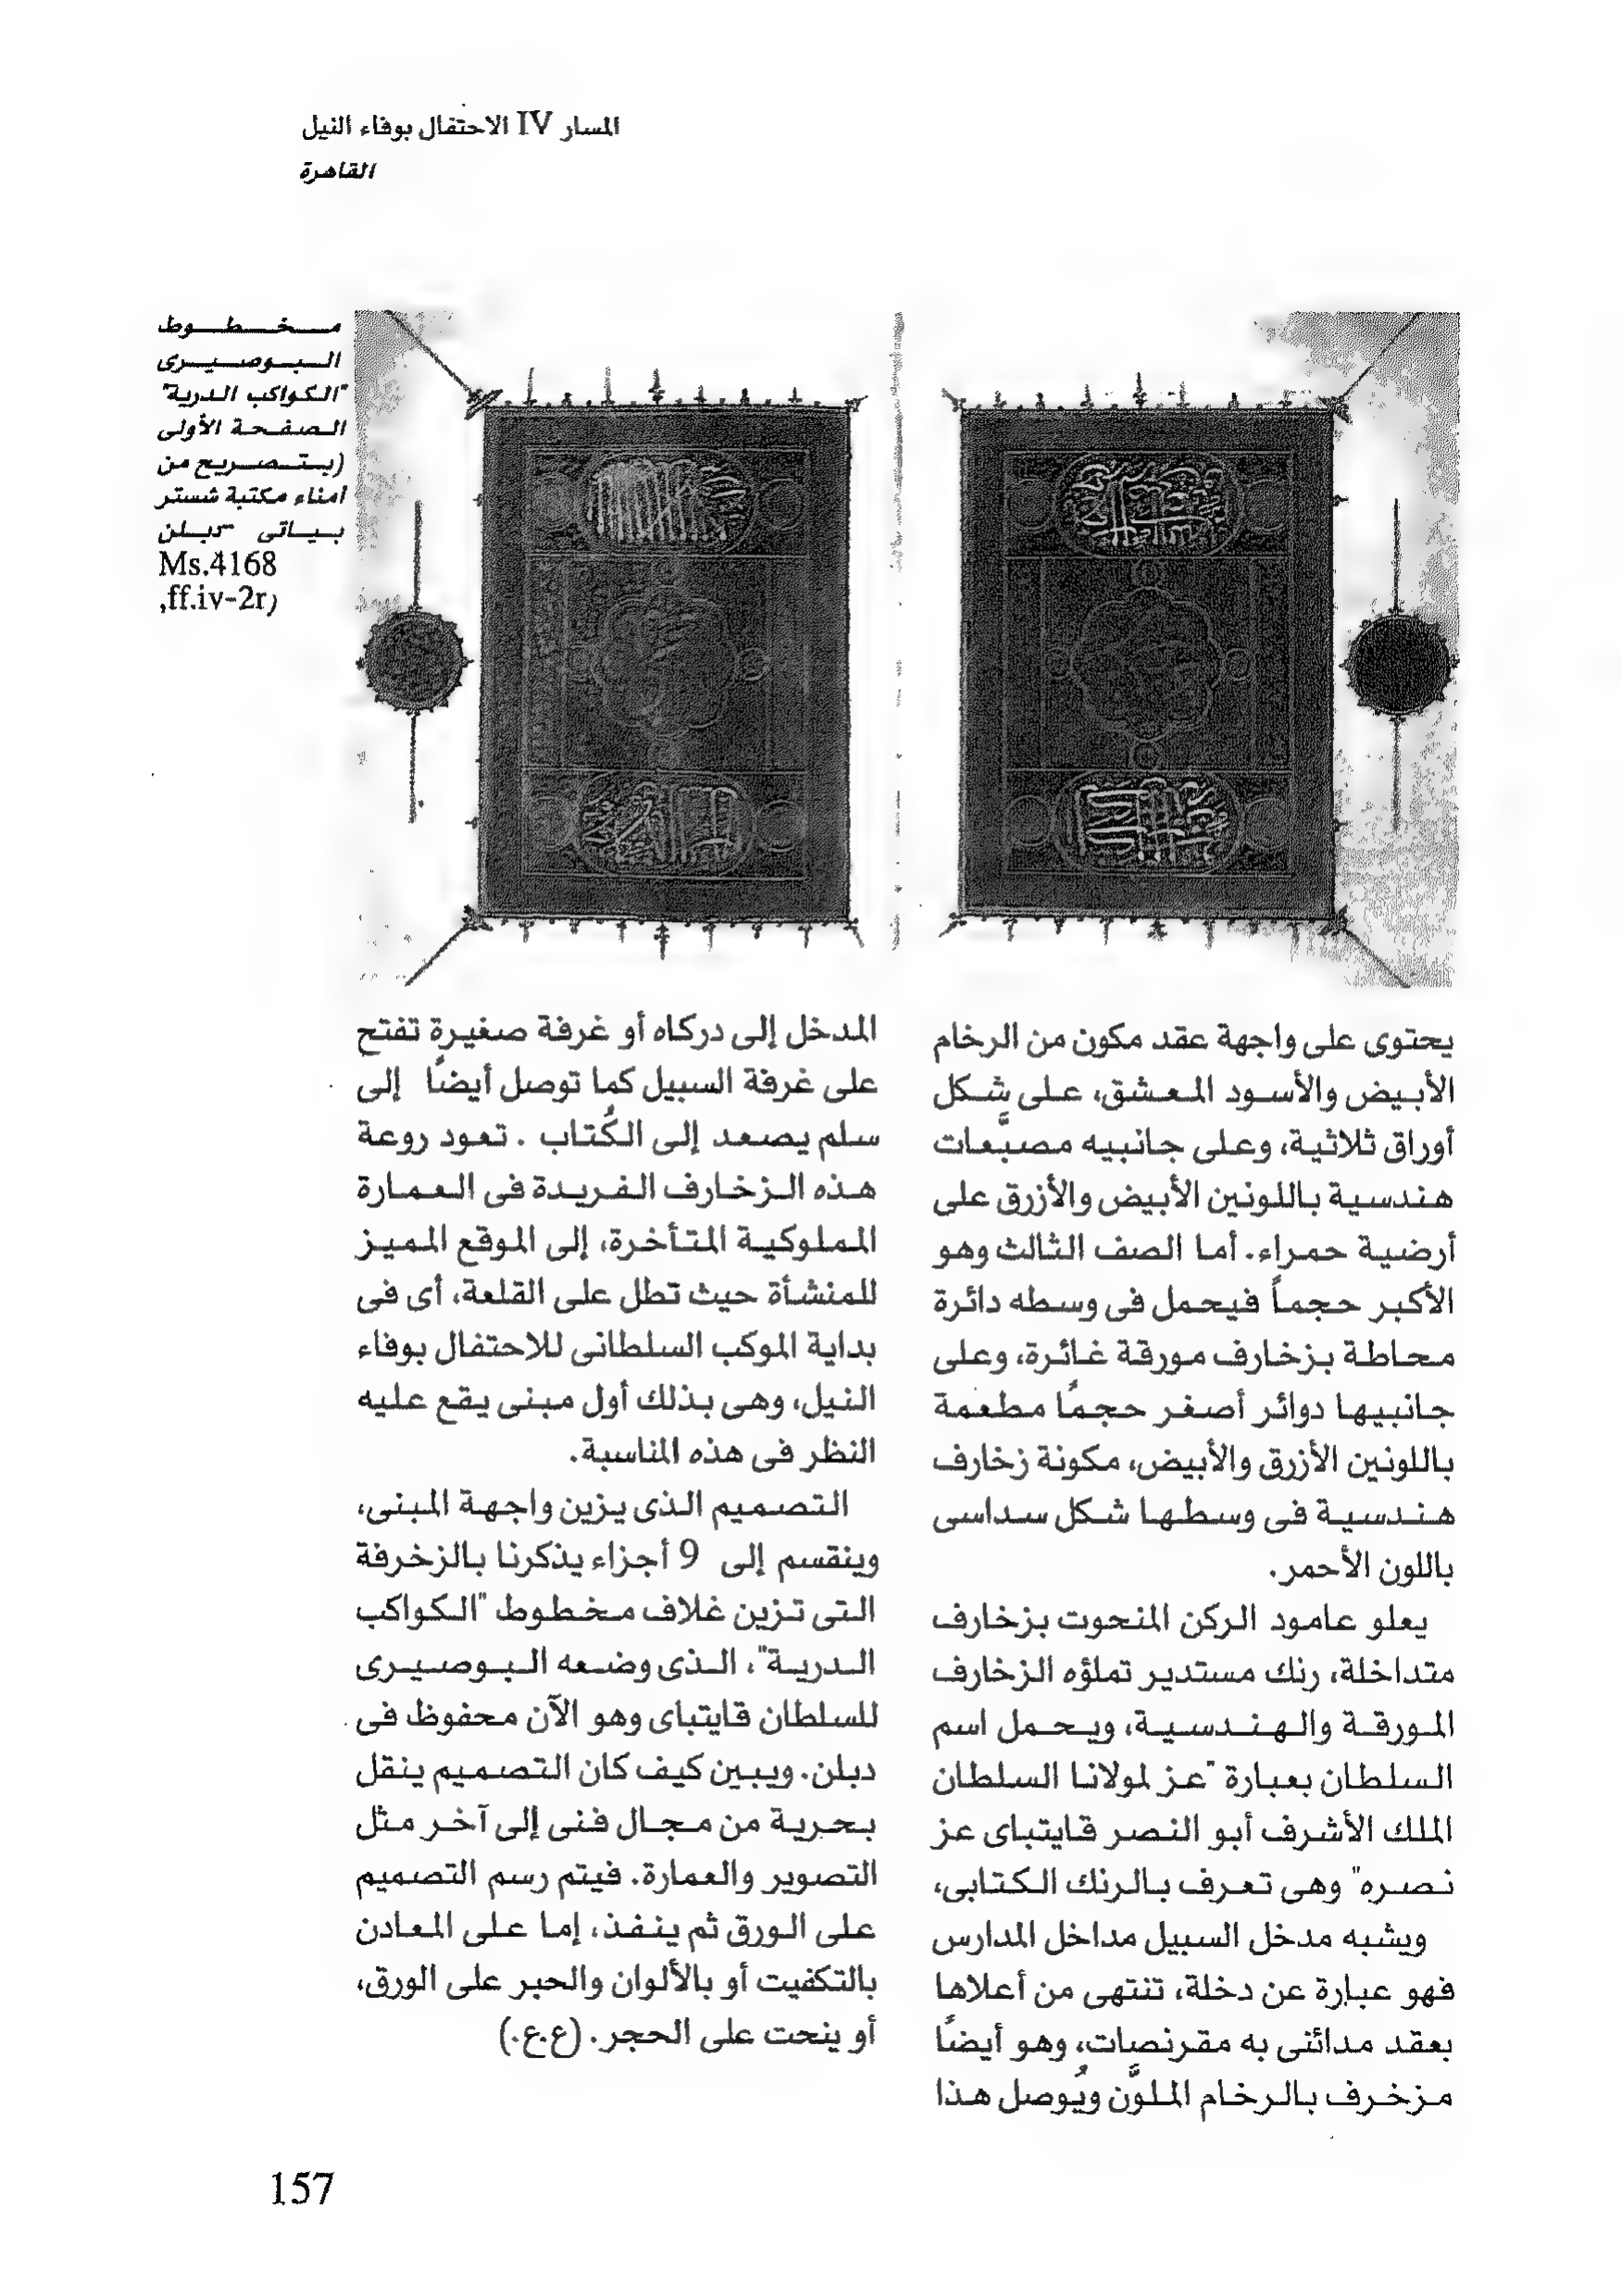 المسار IV الاحتفال بوفاء النيل
القاهرة
مخطوط
البوصيرى
"الكواكب الدرية"
الصفحة الأولى
(بتصريح من
أمناء مكتبة شستر
بياتى دبلن
Ms.4168
,ff.iv-2r)
يحتوى على واجهة عقد مكون من الرخام
الأبيض والأسود المعشق، على شكل
أوراق ثلاثية، وعلى جانبيه مصبَّعات
هندسية باللونين الأبيض والأزرق على
أرضية حمراء. أما الصف الثالث وهو
الأكبر حجماً فيحمل فى وسطه دائرة
محاطة بزخارف مورقة غائرة، وعلى
جانبيها دوائر أصغر حجمًا مطعمة
باللونين الأزرق والأبيض، مكونة زخارف
هندسية فى وسطها شكل سداسى
باللون الأحمر.
يعلو عامود الركن المنحوت بزخارف
متداخلة، رنك مستدير تملؤه الزخارف
المورقة والهندسية، ويحمل اسم
السلطان بعبارة "عز لمولانا السلطان
الملك الأشرف أبو النصر قايتباى عز
نصره" وهى تعرف بالرنك الكتابى،
ويشبه مدخل السبيل مداخل المدارس
فهو عبارة عن دخلة، تنتهى من أعلاها
بعقد مدائنى به مقرنصات، وهو أيضًا
مزخرف بالرخام الملوَّن ويُوصل هذا
المدخل إلى دركاه أو غرفة صغيرة تفتح
على غرفة السبيل كما توصل أيضًا إلى
سلم يصعد إلى الكُتاب . تعود روعة
هذه الزخارف الفريدة فى العمارة
المملوكية المتأخرة، إلى الموقع المميز
للمنشأة حيث تطل على القلعة، أى فى
بداية الموكب السلطانى للاحتفال بوفاء
النيل، وهى بذلك أول مبنى يقع عليه
النظر فى هذه المناسبة.
التصميم الذى يزين واجهة المبنى،
وينقسم إلى 9 أجزاء يذكرنا بالزخرفة
التى تزين غلاف مخطوط "الكواكب
الدرية"، الذى وضعه البوصيرى
للسلطان قايتباى وهو الآن محفوظ فى
دبلن. ويبين كيف كان التصميم ينقل
بحرية من مجال فنى إلى آخر مثل
التصوير والعمارة. فيتم رسم التصميم
على الورق ثم ينفذ، إما على المعادن
بالتكفيت أو بالألوان والحبر على الورق،
أو ينحت على الحجر. (ع.ع.)
157